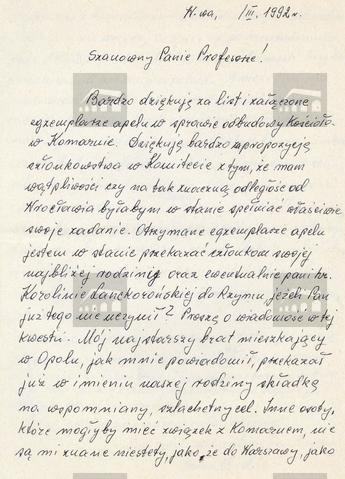 W-wa, /III. 1992r.
Szanowny Panie Profesorze!
Bardzo dziękuję za list i załączone
egzemplarze apelu w sprawie odbudowy Kościoła
w Komarnie. Dziękuję bardzo za propozycję
członkowstwa w Komitecie z tym, że mam
wątpliwości czy na tak znaczną odległość od
Wrocławia byłabym w stanie spełniać właściwie
swoje zadanie. Otrzymane egzemplarze apelu
jestem w stanie przekazać członkom swojej
najbliżej rodziny oraz ewentualnie pani hr.
Karolinie Lanckorońskiej do Rzymu, jeżeli Pan
już tego nie uczynił? Proszę o wiadomość w tej
kwestii. Mój najstarszy brat mieszkający
w Opolu, jak mnie powiadomił, przekazał
już w imieniu naszej rodziny składkę
na wspomniany, szlachetny cel. Inne osoby,
które mogłyby mieć związek z Komarnem, nie
są mi znane niestety, jako, że do Warszawy, jako